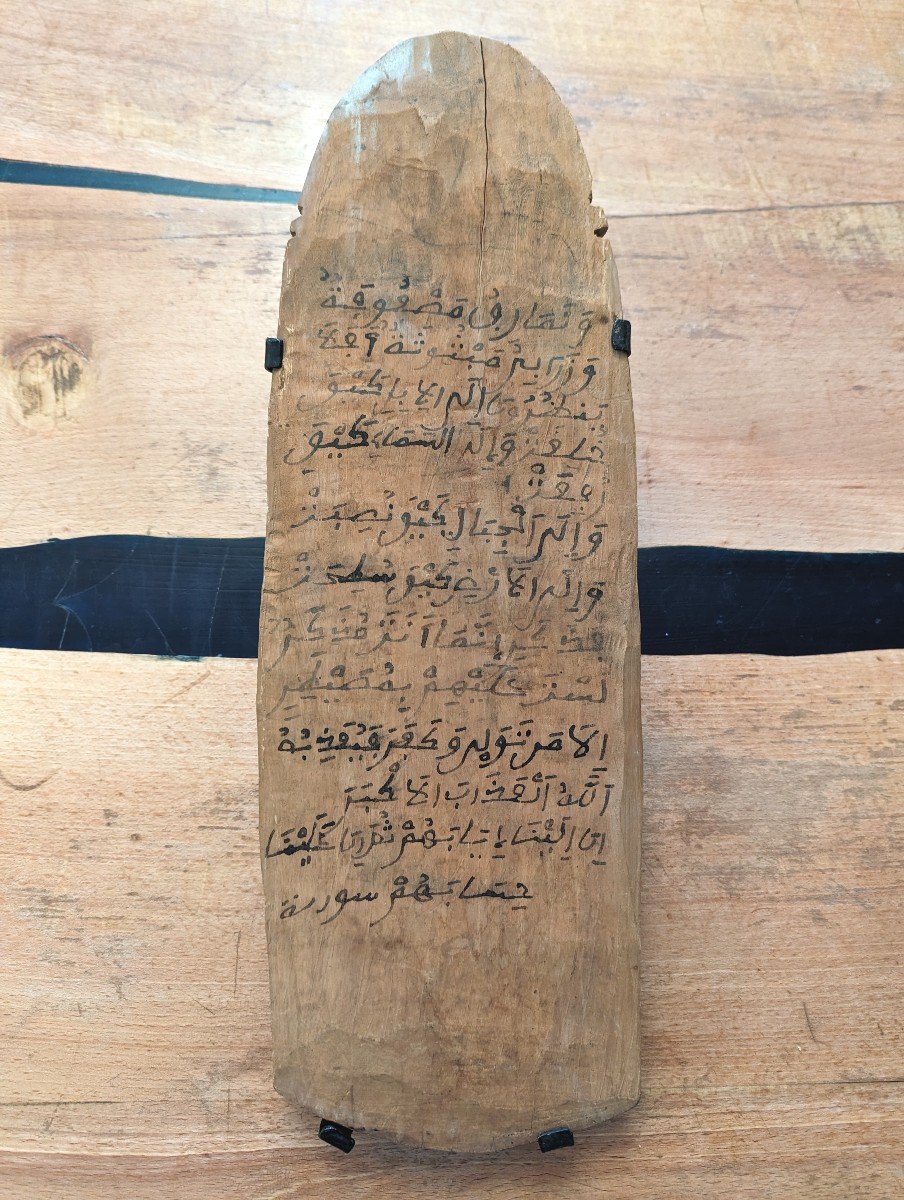 وَنَمَارِقُ مَصْفُوفَةٌ
وَزَرَابِيُّ مَبْثُوثَةٌ أَفَلَا
يَنظُرُونَ إِلَى الْإِبِلِ كَيْفَ
خُلِقَتْ وَإِلَى السَّمَاءِ كَيْفَ
رُفِعَتْ
وَإِلَى الْجِبَالِ كَيْفَ نُصِبَتْ
وَإِلَى الْأَرْضِ كَيْفَ سُطِحَتْ
فَذَكِّرْ إِنَّمَا أَنتَ مُذَكِّرٌ
لَسْتَ عَلَيْهِمْ بِمُصَيْطِرٍ
إِلَّا مَن تَوَلَّى وَكَفَرَ فَيُعَذِّبُهُ
اللَّهُ الْعَذَابَ الْأَكْبَرَ
إِنَّ إِلَيْنَا إِيَابَهُمْ ثُمَّ إِنَّ عَلَيْنَا
حِسَابَهُمْ سورة